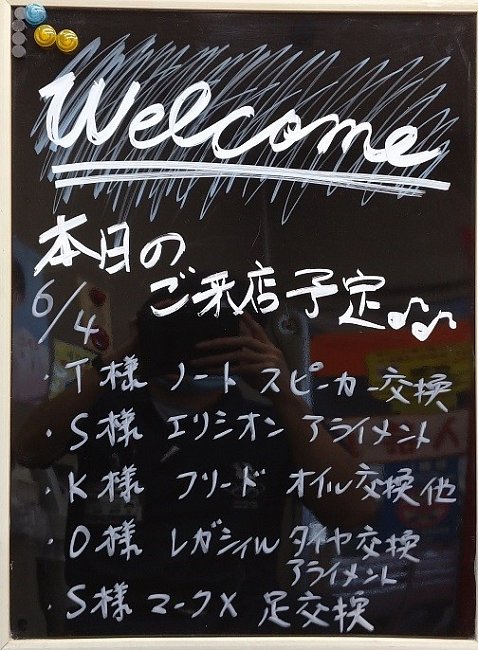 Welcome
本日の
ご来店予定♪♫
6/4
・T様 ノート スピーカー交換
・S様 エリシオン アライメント
・K様 フリード オイル交換他
・O様 レガシィル タイヤ交換
アライメント
・S様 マークX 足交換